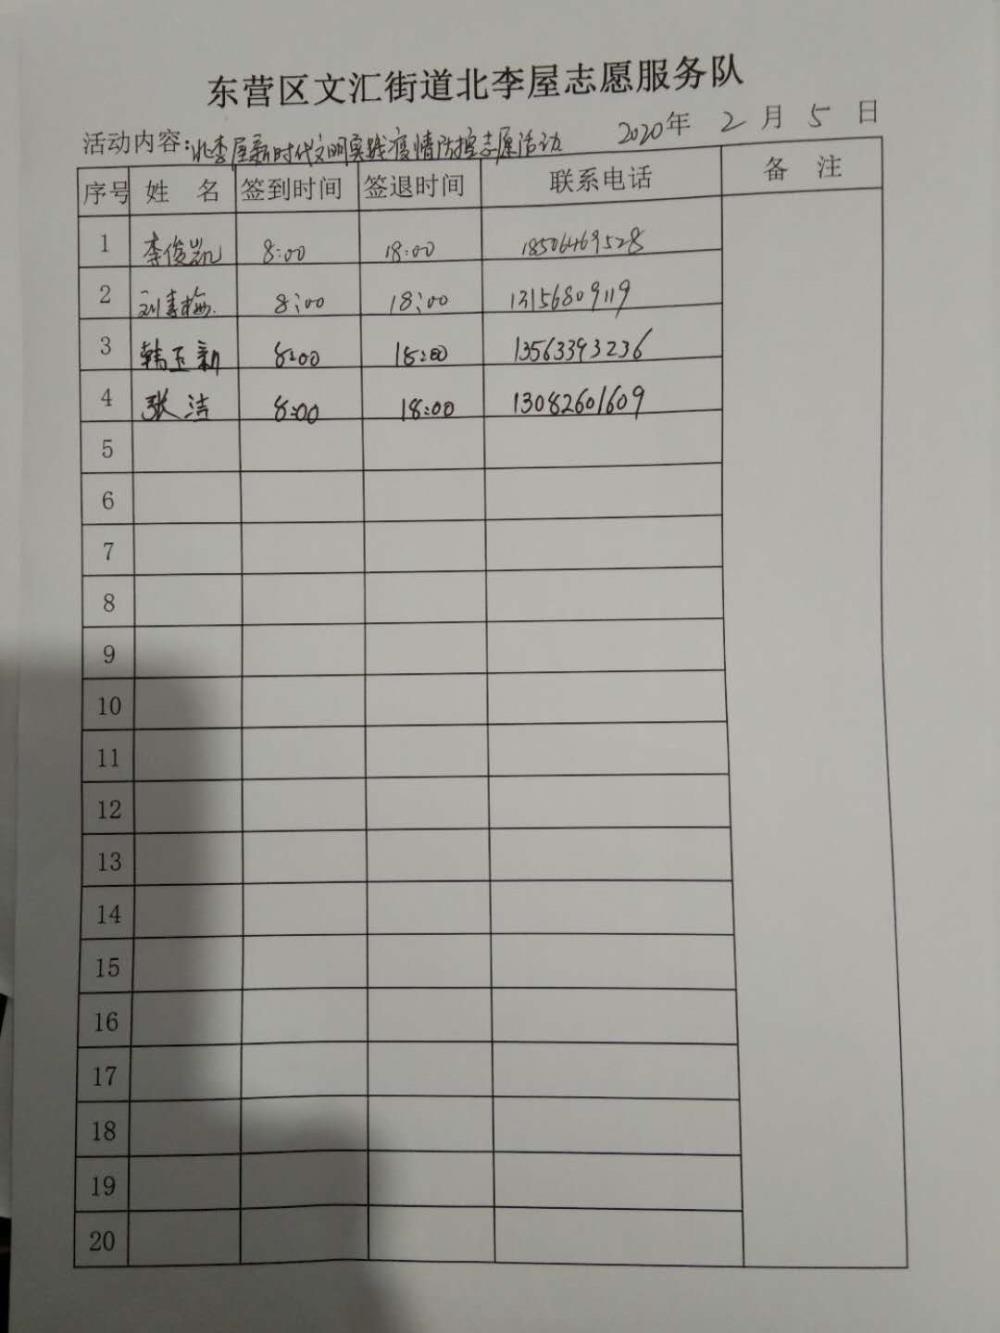 东营区文汇街道北李屋志愿服务队
活动内容:北李屋新时代文明实践疫情防控志愿活动 2020年 2 月 5 日
序号 姓 名 签到时间 签退时间 联系电话 备 注
1 李俊凯 8:00 18:00 18506469528
2 刘春梅 8:00 18:00 13156809119
3 韩玉新 8:00 18:00 13563393236
4 张洁 8:00 18:00 13082601609
5
6
7
8
9
10
11
12
13
14
15
16
17
18
19
20